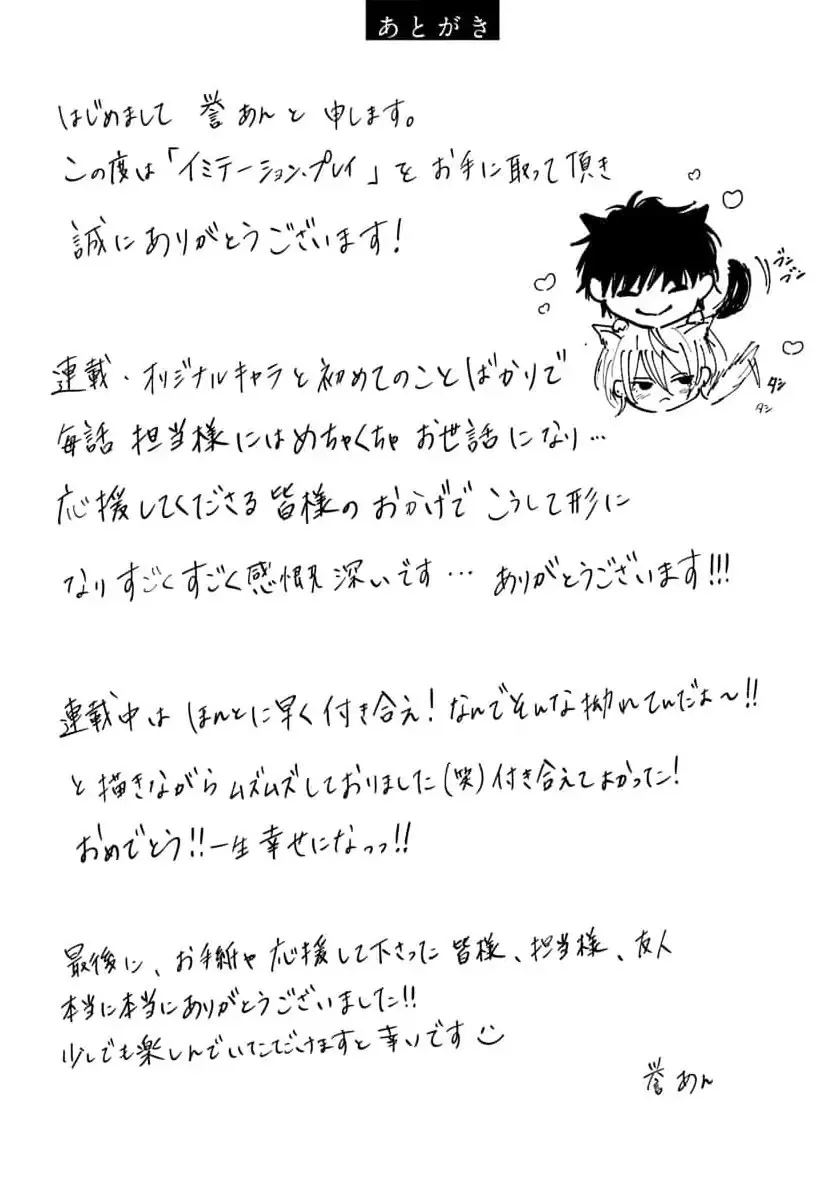 あとがき
はじめまして 誉あんと申します。
この度は「イミテーション・プレイ」をお手に取って頂き
誠にありがとうございます!
ブンブン
連載・オリジナルキャラと初めてのことばかりで
タシ
タシ
毎話 担当様にはめちゃくちゃお世話になり…
応援してくださる皆様のおかげでこうして形に
なりすごくすごく感慨深いです… ありがとうございます!!!
連載中は ほんとに早く付き合え!なんでそんな拗れてんだよ〜!!
と描きながらムズムズしておりました(笑)付き合えてよかった!
おめでとう!!一生幸せになっっ!!
最後に、お手紙や応援して下さった皆様、担当様、友人
本当に本当にありがとうございました!!
少しでも楽しんでいただけますと幸いです
誉あん